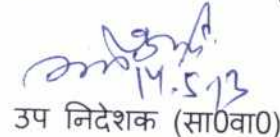 14.5.13
उप निदेशक (सा0वा0)